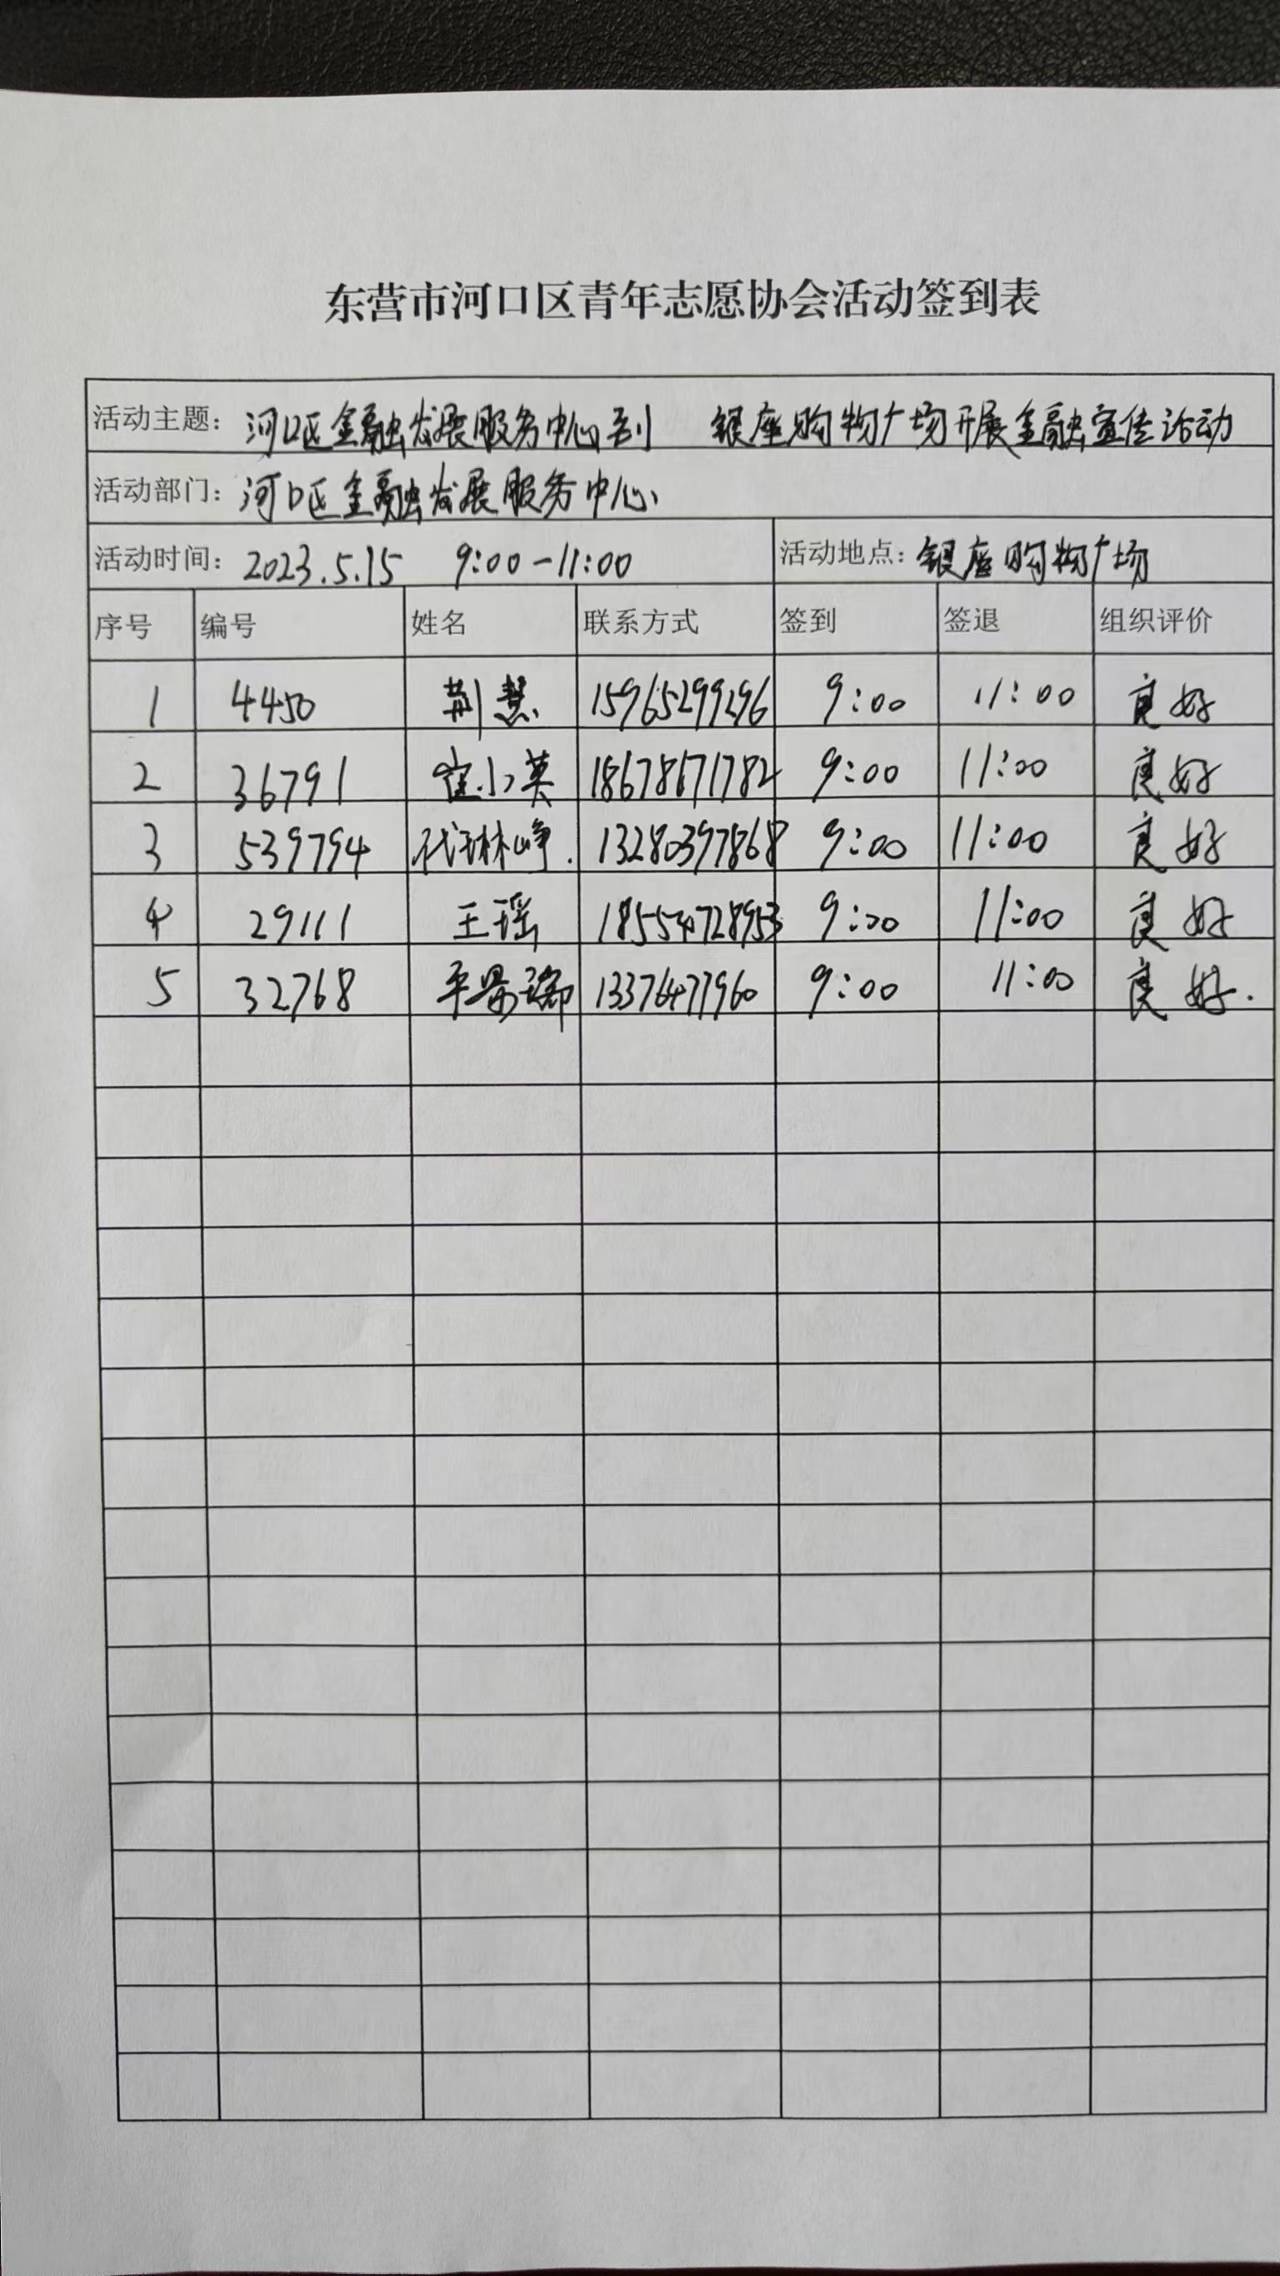 东营市河口区青年志愿协会活动签到表
活动主题：河口区金融发展服务中心到 银座购物广场开展金融宣传活动
活动部门：河口区金融发展服务中心
活动时间：2023.5.15 9:00-11:00 活动地点：银座购物广场
序号 编号 姓名 联系方式 签到 签退 组织评价
1 4450 荆慧 15965299296 9:00 11:00 良好
2 36791 崔小英 18678671782 9:00 11:00 良好
3 539794 代琳峥. 13280397868 9:00 11:00 良好
4 29111 王瑶 18554728953 9:00 11:00 良好
5 32768 平景瑞 13376477960 9:00 11:00 良好.